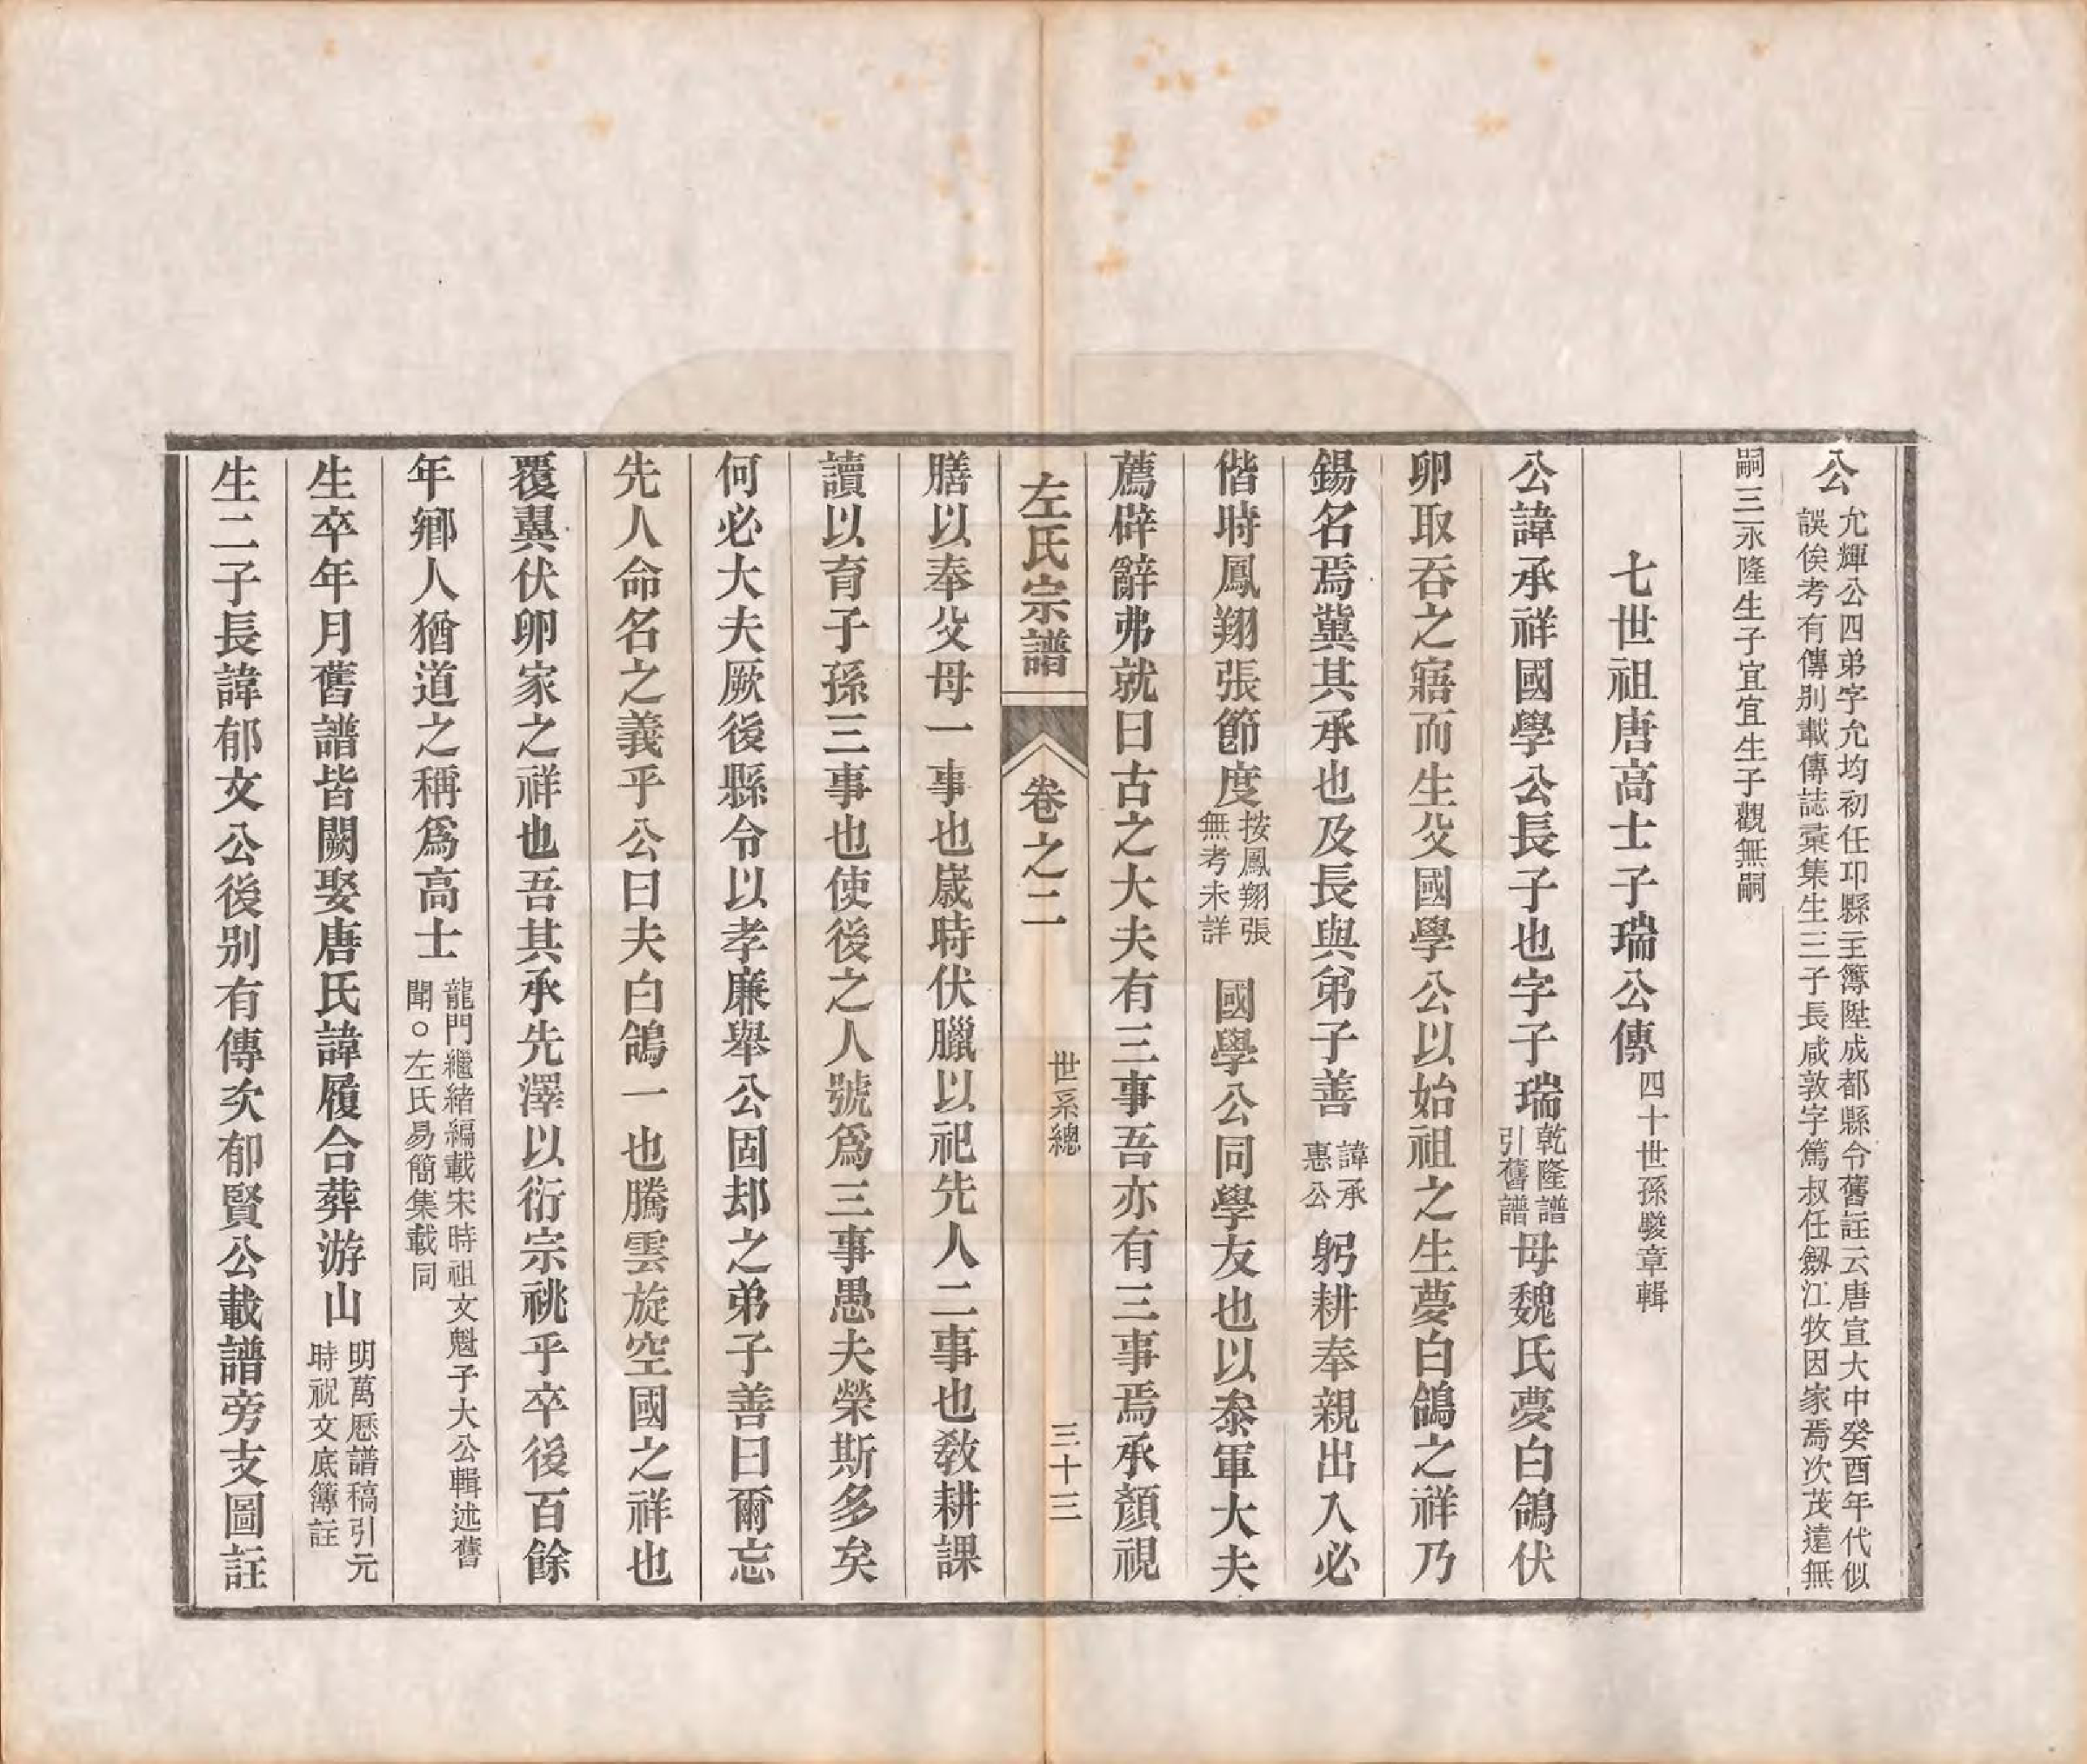 公
允輝公四弟字允均初任邛縣主簿陞成都縣令舊註云唐宣大中癸酉年代似
誤俟考有傳別載傳誌彙集生三子長咸敦字篤叔任劔江牧因家焉次茂遠無
嗣三永隆生子宜宜生子觀無嗣
七世祖唐高士子瑞公傳四十世孫駿章輯
公諱承祥國學公長子也字子瑞乾隆譜引舊譜母魏氏夢白鴿伏
卵取吞之寤而生父國學公以始祖之生夢白鴿之祥乃
錫名焉冀其承也及長與弟子善諱承惠公躬耕奉親出入必
偕時鳳翔張節度按鳳翔張無考未詳國學公同學友也以叅軍大夫
薦辟辭弗就曰古之大夫有三事吾亦有三事焉承顏視
左氏宗譜 卷之二 世系總 三十三
膳以奉父母一事也歲時伏臘以祀先人二事也敎耕課
讀以育子孫三事也使後之人號爲三事愚夫榮斯多矣
何必大夫厥後縣令以孝廉舉公固却之弟子善曰爾忘
先人命名之義乎公曰夫白鴿一也騰雲旋空國之祥也
覆翼伏卵家之祥也吾其承先澤以衍宗祧乎卒後百餘
年鄉人猶道之稱爲高士龍門繼緒編載宋時祖文魁子大公輯述舊聞○左氏易簡集載同
生卒年月舊譜皆闕娶唐氏諱履合葬游山明萬曆譜稿引元時祝文底簿註
生二子長諱郁文公後别有傳次郁賢公載譜旁支圖註